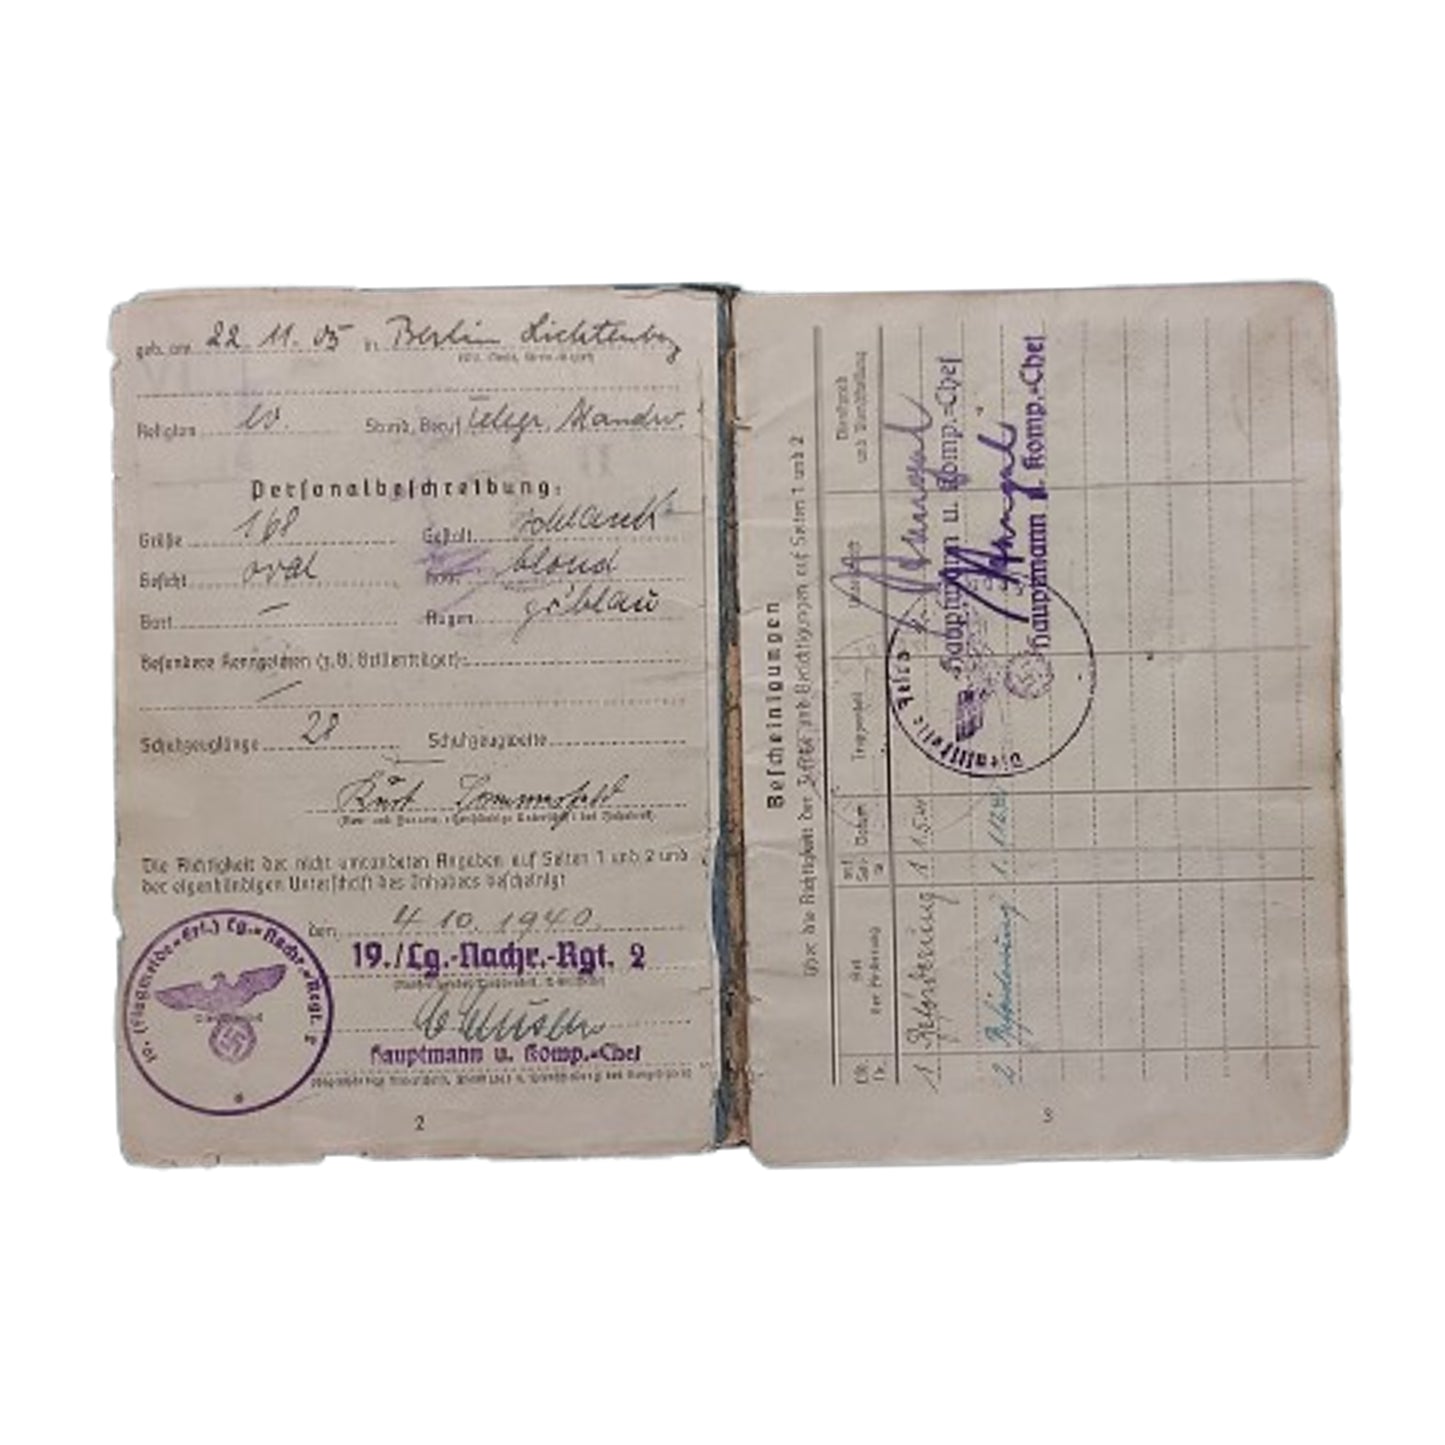 geb. am 22. 11. 05 in Berlin Lichtenberg
Religion ev. Stand, Beruf Telegr. Handw.
Personalbeschreibung:
Größe 168 Gestalt schlank
Gesicht oval Haar blond
Bart — Augen gr'blau
Besondere Kennzeichen (z.B. Brillenträger):
—
Schuhzeuglänge 28 Schuhzeugweite
Kurt Sommerfeld
(Vor- und Zuname, eigenhändige Unterschrift des Inhabers)
Die Richtigkeit der nicht umrandeten Angaben auf Seiten 1 und 2 und
der eigenhändigen Unterschrift des Inhabers bescheinigt
den 4. 10. 1940.
19./Lg.-Nachr.-Rgt. 2
Hauptmann u. Komp.-Chef
19. (Flugmelde-Erf.) Lg.-Nachr.-Regt. 2
2
Bescheinigungen
über die Richtigkeit der Zusätze und Berichtigungen auf Seiten 1 und 2
Lfd. Nr. Art der Änderung auf Seite Datum Truppenteil Unterschrift Dienstgrad und Dienststellung
1 Beförderung 1 1.5.41 Hauptmann u. Komp.-Chef
2 Beförderung 1 Hauptmann u. Komp.-Chef
Dienststelle Feldp
3